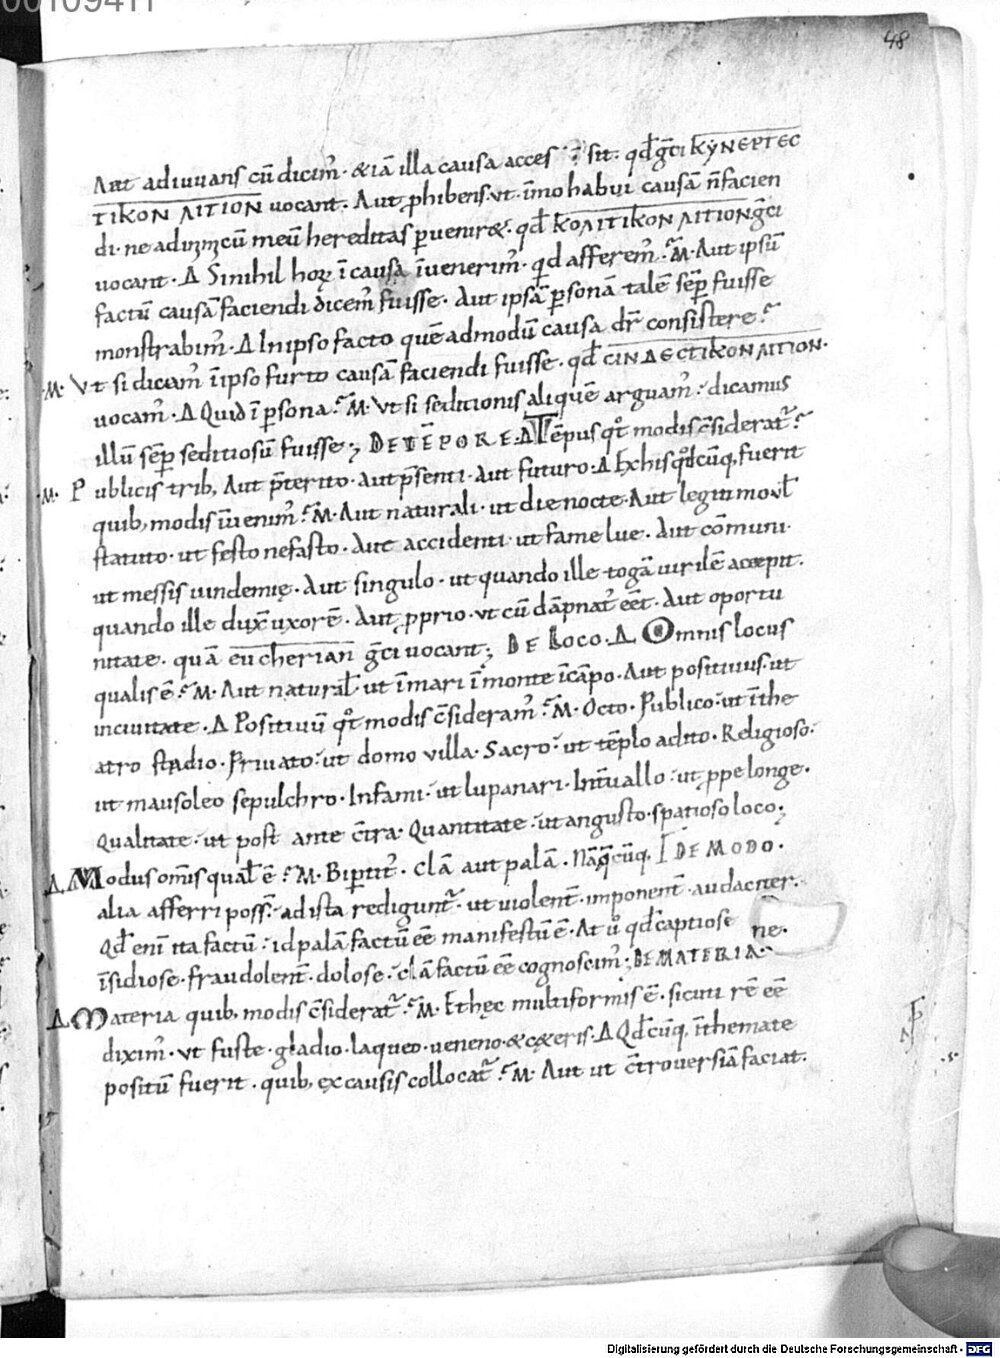 00109411
48
Aut adiuuans cū dicim̄. &iā illa causa acces ? sit. qđ gͣci KYNEPTEC
TIKON ΛITION uocant. Aut phibens. ut. īmo habui causā n̄ facien
di. ne ad meū hereditas pueniret. qđ KOΛITIKON ΛITION gͣci
uocant. Δ Sinihil horͮ ī causa īuenerim̄. qd afferem̄. M. Aut ipsū
factū causā faciendi dicem̄ fuisse. Aut ipsā psonā talē semp fuisse
monstrabim̄. Δ Inipso facto quēadmodū causa dr̄ consistere?
M. Vt si dicam̄ īipso furto causā faciendi fuisse. qđ CINΔECTIKON ΛITION.
uocam̄. Δ Quid ī psona? M. Vt si seditionis aliquē arguam̄. dicamus
illū semp seditiosū fuisse; DE TĒPORE. Δ Tēpus qͦt modis c̄siderat̄?
M. Publicis trib, Aut p̄terito. aut p̄senti. aut futuro. Δ Exhis qđcūq, fuerit
quib, modis īuenim̄? M. Aut naturali. ut die nocte. Aut legitimo ul
statuto. ut festo nefasto. Aut accidenti. ut fame lue. Aut cōmuni.
ut messis uindemię. Aut singulo. ut quando ille togā uirilē accepit.
quando ille duxͭ uxorē. Aut pprio. ut cū dāpnat̄ eēt. Aut oportu
nitate. quā eucherian gͣci uocant; DE LOCO. Δ Omnis locus
qualis ē? M. Aut natural. ut ī mari ī monte ī cāpo. Aut positiuus. ut
inciuitate. Δ Positiuū qͦt modis c̄sideram̄? M. Octo. Publico. ut īthe
atro stadio. Priuato. ut domo villa. Sacro. ut tēplo adito. Religioso.
ut mausoleo sepulchro. Infami. ut lupanari. Int̄uallo. ut ppe longe.
Qualitate. ut post ante c̄tra. Quantitate. ut angusto. spatioso loco;
Δ. Modus om̄is qual ē? M. Bip̄tit̄. Clā aut palā. Nāq̄cūq, DE MODO.
alia afferri poss̄. ad ista redigunt̄. ut uiolent̄. imponent̄. audaciter.
Qđ enī ita factū. id palā factū eē manifestū ē. At uͦ qđ captiose ne.
īsidiose. fraudolent̄. dolose. clā factū eē cognoscim̄. DE MATERIA.
Δ. Materia quib, modis c̄siderat̄? M. Ethęc multiformis ē. sicuti rē eē
dixim̄. ut fuste. gladio. laqueo. ueneno. & cęteris. Δ Qđcūq, īthemate
positū fuerit. quib, ex causis collocat̄? M. Aut ut c̄trouersiā faciat.
Digitalisierung gefördert durch die Deutsche Forschungsgemeinschaft - DFG